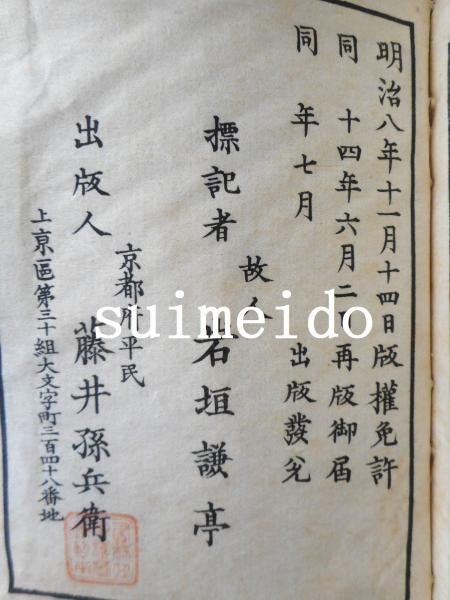 明治八年十一月十四日版權免許
同 十四年六月二日再版御届
同 年七月 出版發兌
標記者 故人 岩垣謙亭
出版人 京都府平民 藤井孫兵衛
上京區第三十組大文字町三百四十八番地
suimeido